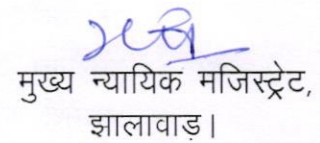 मुख्य न्यायिक मजिस्ट्रेट,
झालावाड़।